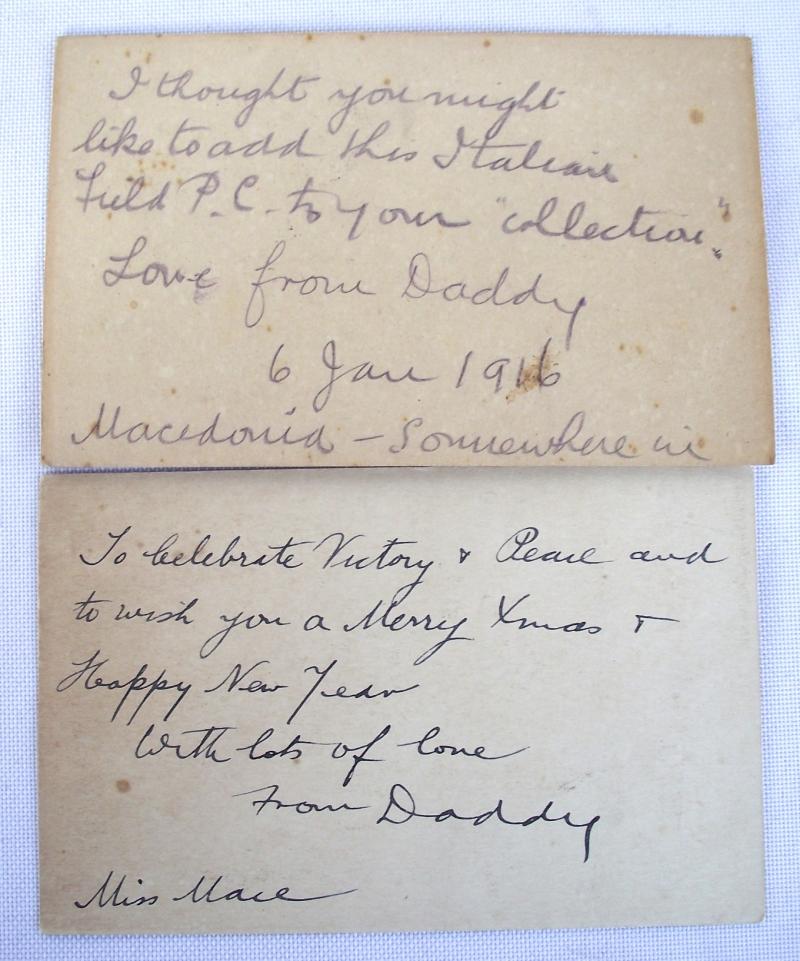 I thought you might
like to add this Italian
Field P.C. to your "collection".
Love from Daddy
6 Jan 1916
Macedonia - Somewhere in
To Celebrate Victory & Peace and
to wish you a Merry Xmas &
Happy New Year
With lots of love
From Daddy
Miss Mace